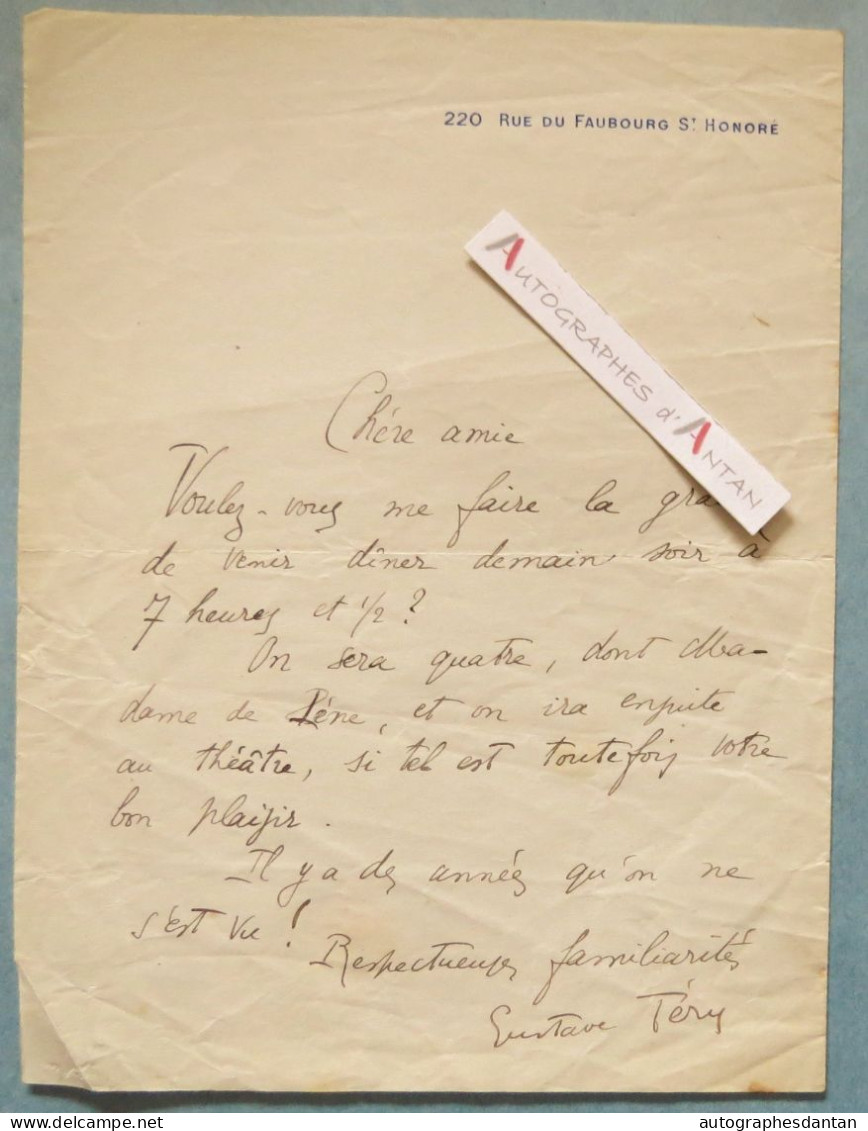 220 RUE DU FAUBOURG ST HONORÉ
AUTOGRAPHES d'ANTAN
Chère amie
Voulez-vous me faire la
de venir dîner demain soir à
7 heures et 1/2 ?
On sera quatre, dont Ma-
dame de et on ira ensuite
au théâtre, si tel est toutefois votre
bon plaisir.
Il y a des années qu'on ne
s'est vu !
Respectueuses familiarités
Gustave Téry
www.delcampe.net
autographesdantan